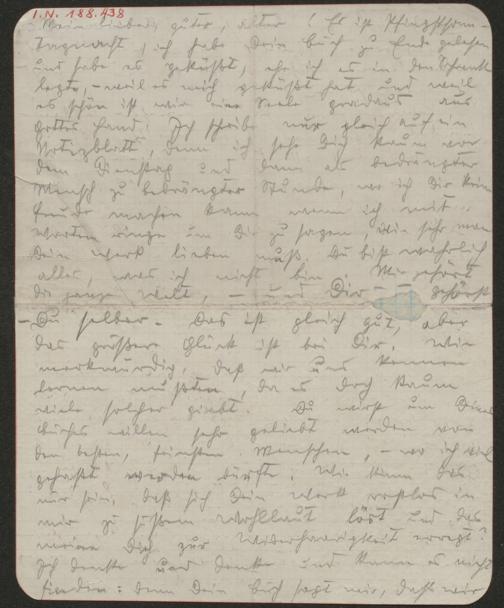 I.N. 188.438
Mein lieber, guter, alter! Es ist Pfingstsonn-
tagnacht, ich habe Dein Buch zu Ende gelesen
und habe es geküßt, ehe ich es in den Schrank
legte, – weil es mich geküßt hat und weil
es schön ist wie eine Seele geradaus aus
Gottes Hand. Ich schreibe nur gleich auf ein
Notizblatt, denn ich sehe Dich kaum vor
dem Dienstag und dann als bedrängter
Mensch zu bedrängter Stunde, wo ich Dir keine
Freude machen kann wenn ich mit
Worten ringe um Dir zu sagen, wie sehr man
Dein Werk lieben muß. Du bist wahrlich
alles, was ich nicht bin. Mir gehört
die ganze Welt, – und Dir – gehörst
– Du selber. Das ist gleich gut, aber
das größere Glück ist bei Dir. Wie
merkwürdig, daß wir uns kennen
lernen mußten, da es doch kaum
viele solcher giebt. Du wirst um Deines
Buches willen sehr geliebt werden von
den besten, feinsten Menschen, – wo ich viel
gehaßt werden dürfte. Wie kann das
nur sein, daß sich Dein Werk restlos in
mir zu süßem Wohllaut löst und das
meine Dich zur Widerhaarigkeit erregt?
Ich denke und denke und kann es nicht
finden: denn Dein Buch sagt mir, daß wir